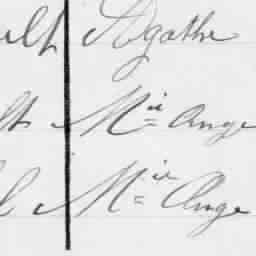 elt Agathe
lt Mie Ange
l Mie Ange